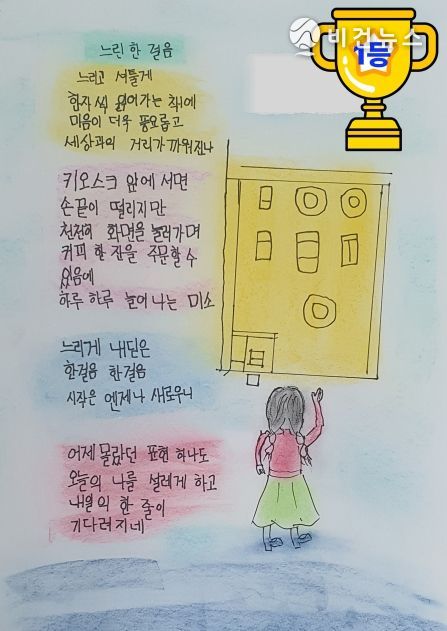 비건뉴스
1등
느린 한 걸음
느리고 서툴게
한자씩 읽어가는 책에
마음이 더욱 풍요롭고
세상과의 거리가 까워진다
키오스크 앞에 서면
손끝이 떨리지만
천천히 화면을 눌러가며
커피 한 잔을 주문할 수
있음에
하루 하루 늘어 나는 미소
느리게 내딛은
한걸음 한걸음
시작은 엔제나 새로우니
어제 몰랐던 표현 하나도
오늘의 나를 설레게 하고
내일의 한 줄이
기다려지네